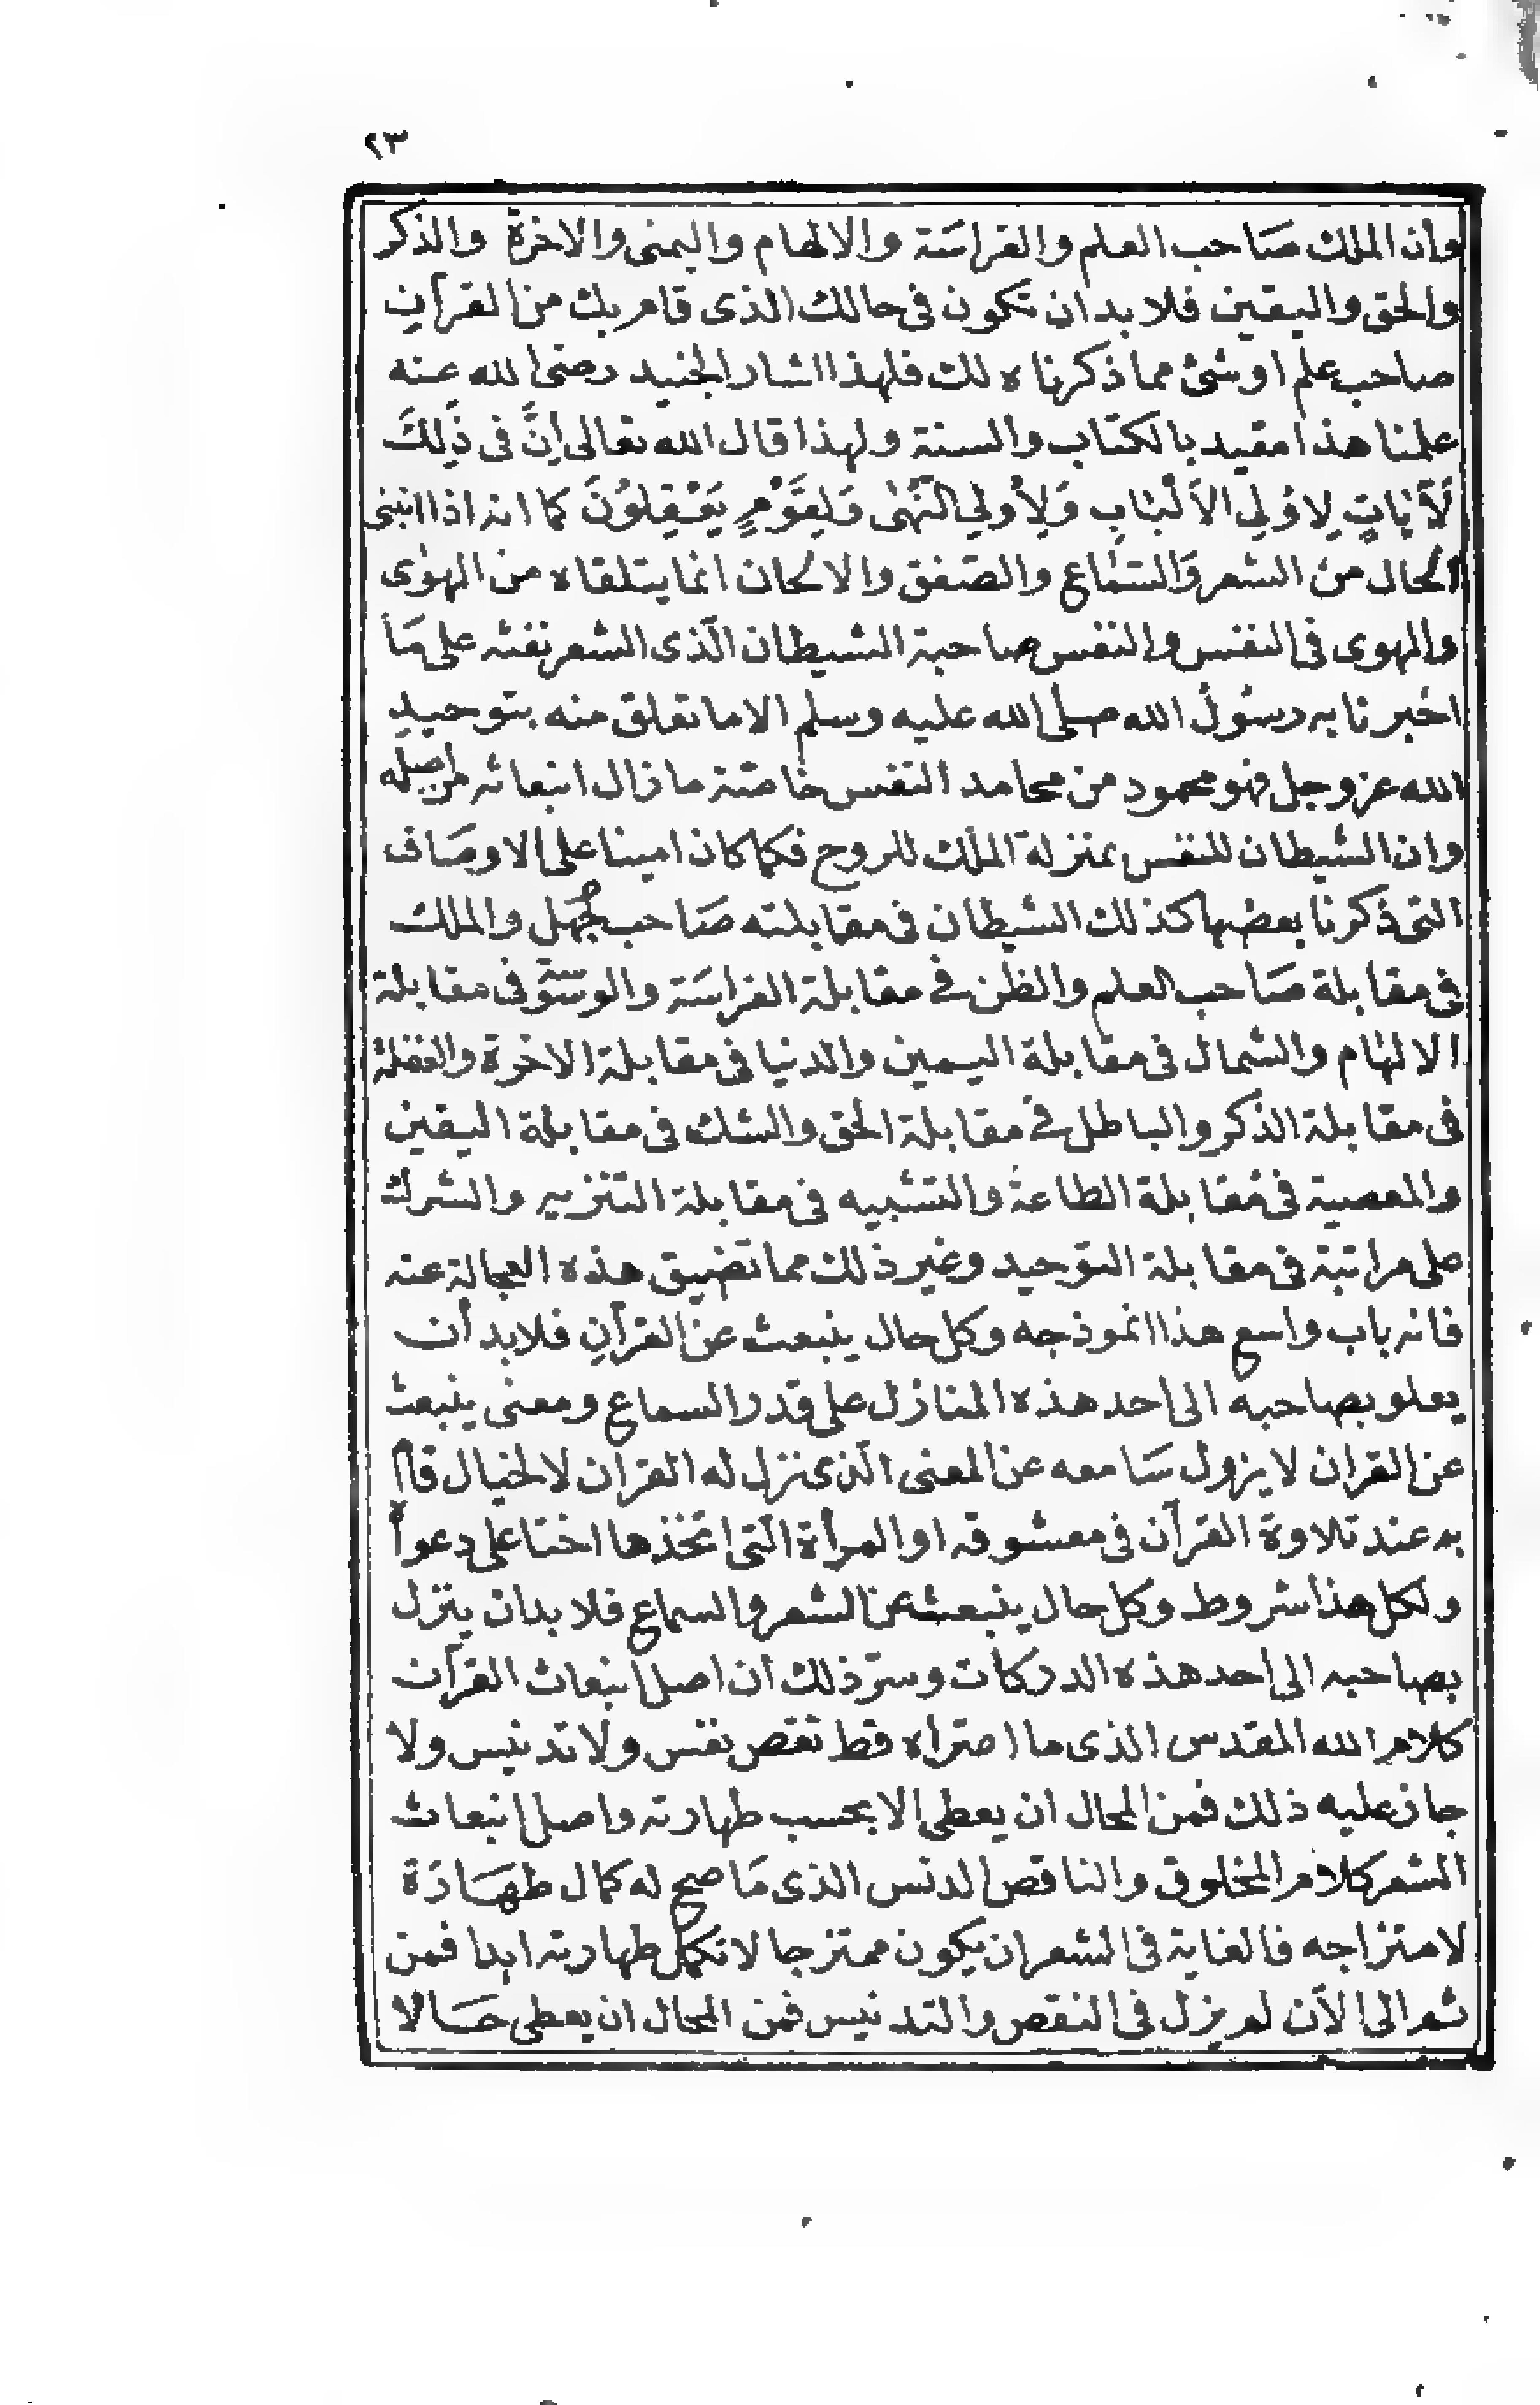 ٢٣
وأن الملك صَاحب العلم والفراسَة والالهام واليمنى والاخرة والذكر
والحق واليقين فلا بد ان تكون فى حالك الذى قام بك من القرآنِ
صاحب علم او شئ مما ذكرناه لك فلهذا اشار الجنيد رضى الله عنه
علمنا هذا مقيد بالكتاب والسنة ولهذا قال الله تعالى اِنَّ فى ذٰلِكَ
لَآيَاتٍ لِاوُلِى الاَلْبَابِ وَلِأُولِي النُّهٰى وَلِقَوْمٍ يَعْقِلُوْنَ كما انه اذا انبنى
الحال من الشعر وَالسَّمَاع والصَفق والالحان انما يتلقاه من الهوٰى
والهوى فى النفس والنفس صاحبة الشيطان الّذى الشعر نفثه على مَا
اخبرنا به رسُولُ الله صلى الله عليه وسلم الا ما تعلق منه بتوحيدِ
الله عز وجل فهو محمود من محامد النفس خاصّة ما زال انبعاثه من اصله
وان الشيطان للنفس بمنزلة الملك للروح فكما كان امينا على الاوصَاف
التى ذكرنا بعضها كذلك الشيطان فى مقابلته صَاحب جهل والملك
فى مقابلة صَاحب العلم والظن فى مقابلة الفراسَة والوسوسة فى مقابلة
الالهٰام والشمال فى مقابلة اليمين والدنيا فى مقابلة الاخرة والغفلة
فى مقابلة الذكر والباطل فى مقابلة الحق والشك فى مقابلة اليقين
والمعصية فى مُقابلة الطاعة والتشبيه فى مقابلة التنزيه والشرك
على مراتبة فى مقابلة التوحيد وغير ذلك مما تضيق هذه العجالة عنه
فانه باب واسع هذا انموذجه وكل حال ينبعث عن القرآنِ فلابد أن
يعلو بصاحبه الى احد هذه المنازل على قدر السماع ومعنى ينبعث
عن القران لا يزول سَامعه عن المعنى الّذى نزل له القران لا لخيال قام
به عند تلاوة القرآن فى معشوقه او المرأة الّتى اتخذها اختا على دعواه
ولكل هذا شروط وكل حال ينبعث عن الشعر والسماع فلا بد ان ينزل
بصاحبه الى احد هذه الدركات وسرّ ذلك ان اصل انبعاث القرآن
كلام الله المقدس الذى ما اعتراه قط نقص نفس ولا تدنيس ولا
جاز عليه ذلك فمن المحال ان يعطى الا بحسب طهارته واصل انبعاث
الشعر كلام المخلوق والناقص الدنس الذى مَا صح له كمال طهَارَة
لامتزاجه فالغاية فى الشعر ان يكون ممتزجا لا تكمل طهارته ابدا فمن
ثم الى الآن لم يزل فى النقص والتدنيس فمن المحال ان يعطى حَالا